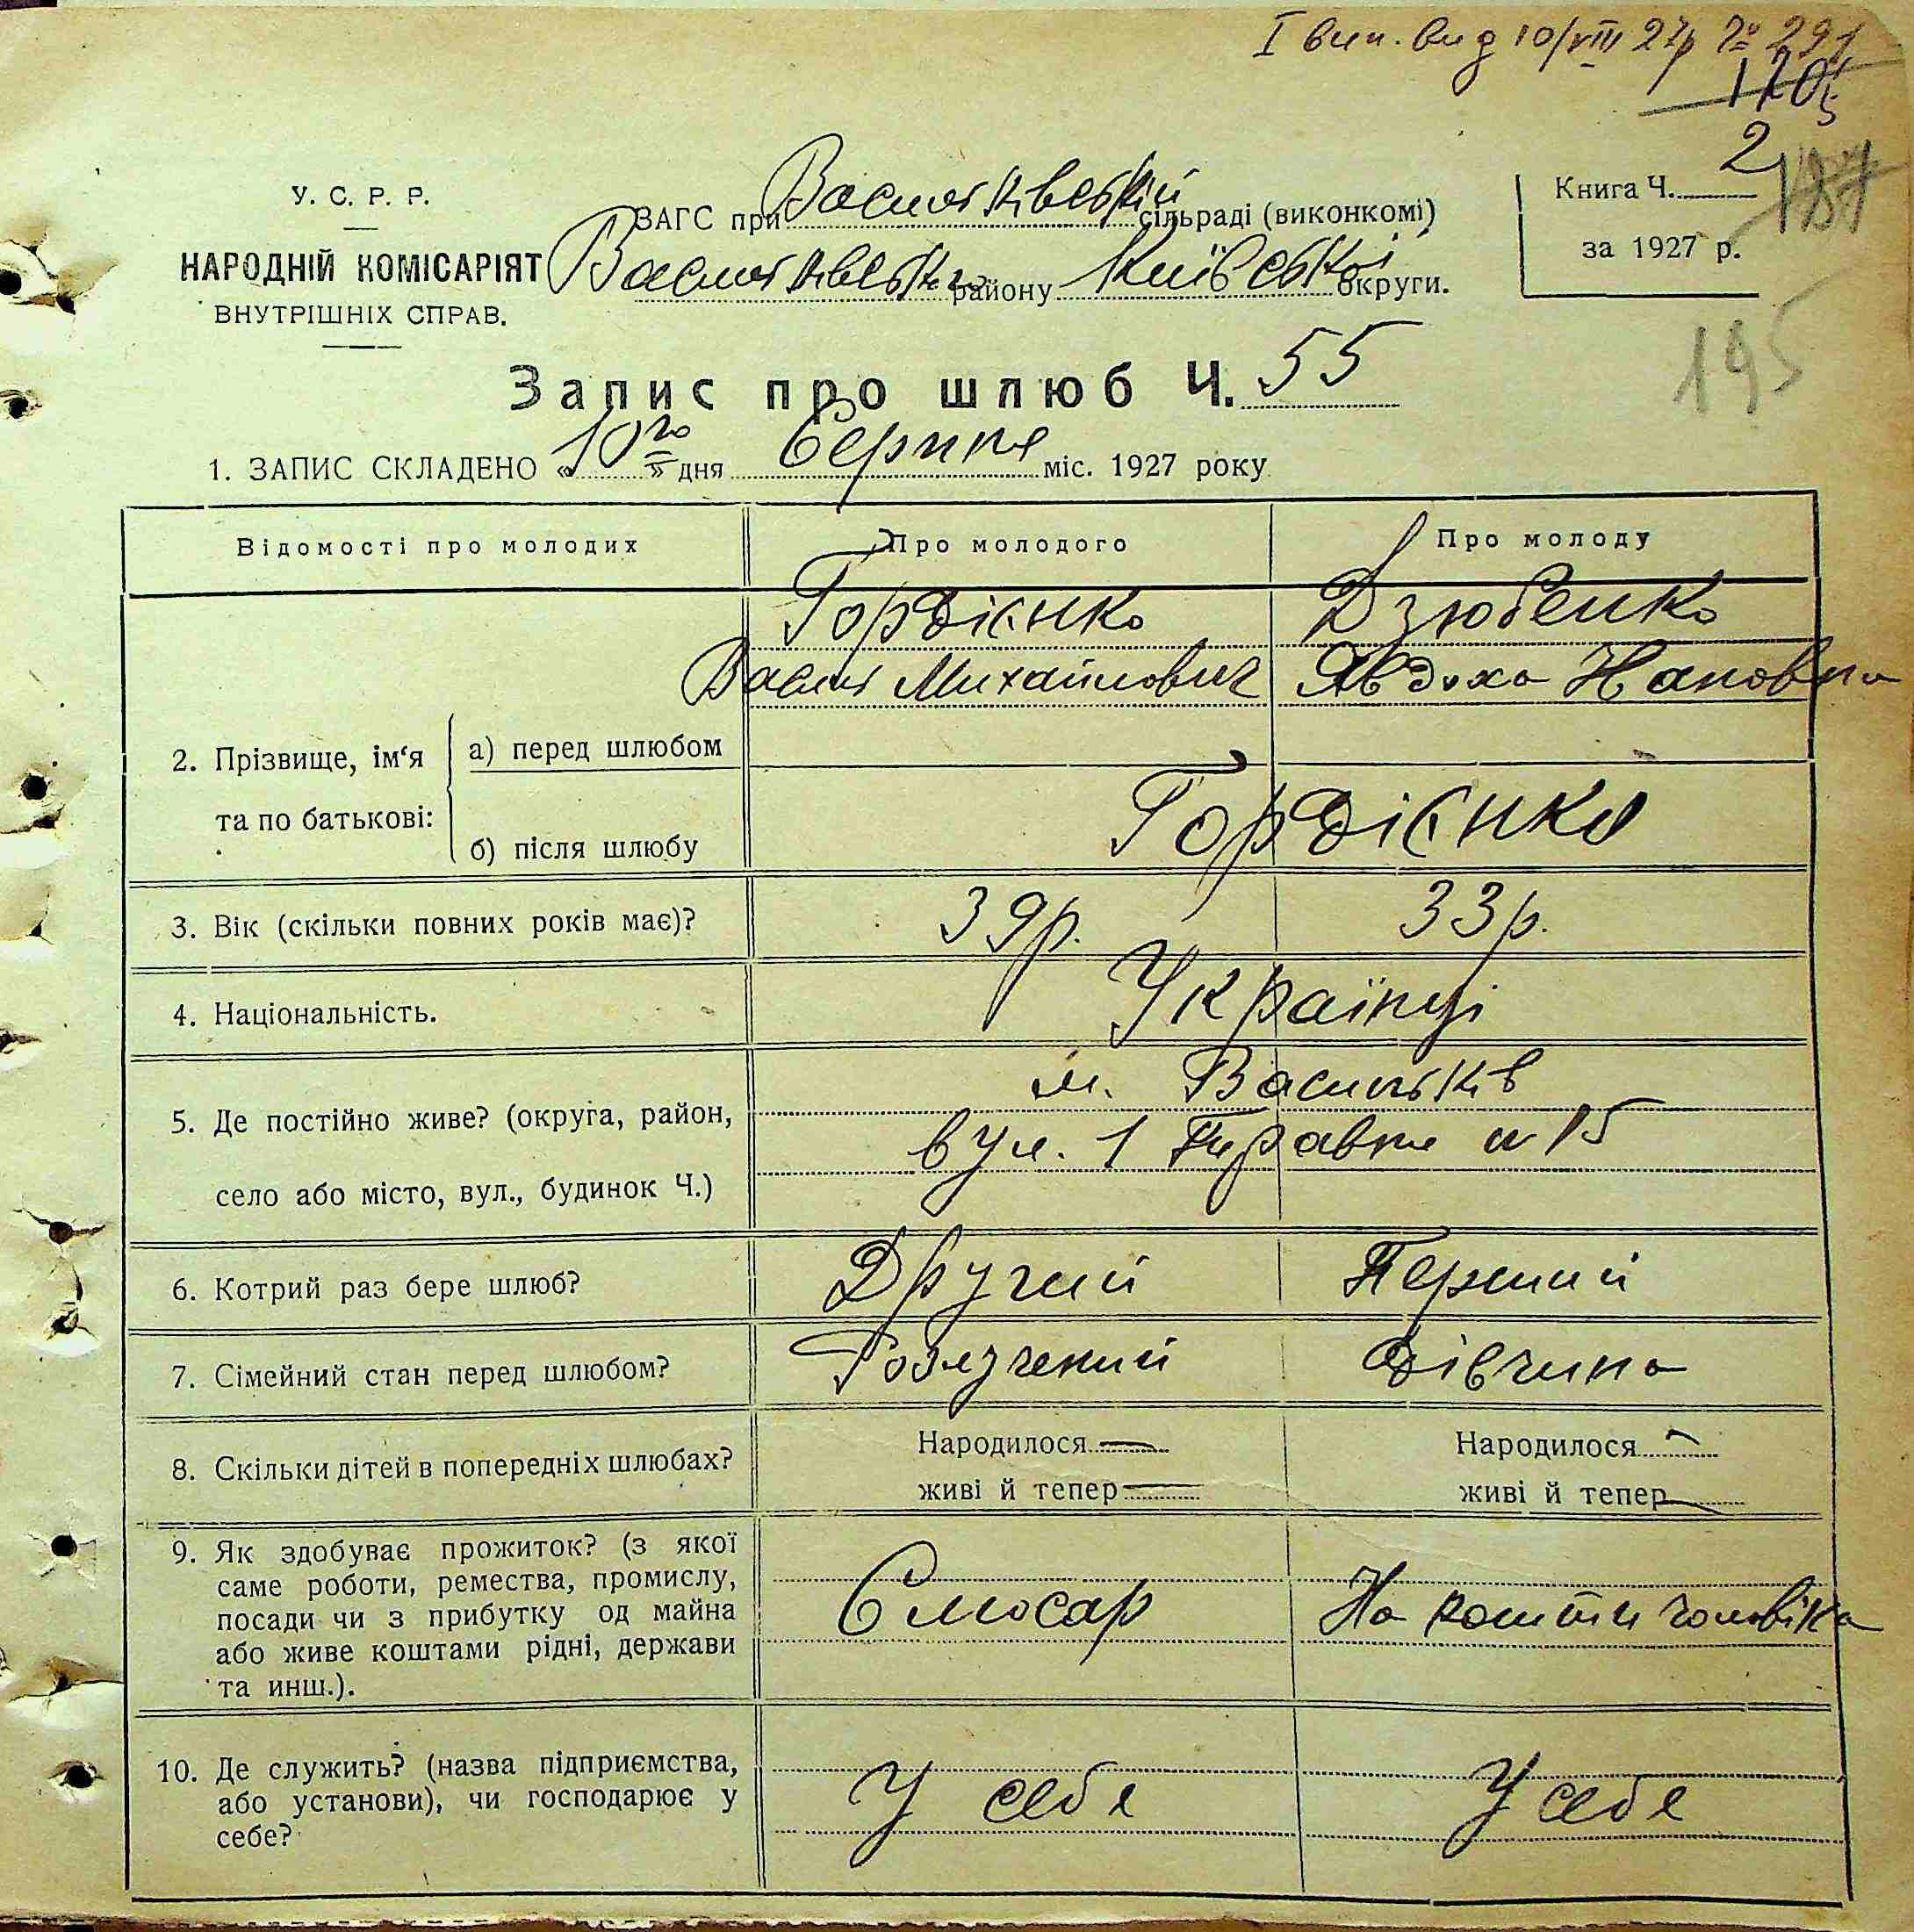 І вип. вид 10/VIII 27р № 291
170
Книга Ч. 2
187
за 1927 р.
195
У. С. Р. Р.
НАРОДНІЙ КОМІСАРІЯТ
ВНУТРІШНІХ СПРАВ.
ЗАГС при Васильківській сільраді (виконкомі)
Васильківськ. району Київської округи.
Запис про шлюб Ч. 55
1. ЗАПИС СКЛАДЕНО «10го» дня Серпня міс. 1927 року
Відомості про молодих Про молодого Про молоду
Гордієнко Дзюбенко
Василь Михайлович Явдоха
2. Прізвище, ім'я та по батькові: а) перед шлюбом
б) після шлюбу Гордієнко
3. Вік (скільки повних років має)? 39р. 33р.
4. Національність. Українці
5. Де постійно живе? (округа, район, м. Васильків
село або місто, вул., будинок Ч.) вул. 1 15
6. Котрий раз бере шлюб? Другий Перший
7. Сімейний стан перед шлюбом? Розлучений дівчина
8. Скільки дітей в попередніх шлюбах? Народилося — Народилося —
живі й тепер — живі й тепер —
9. Як здобуває прожиток? (з якої
саме роботи, ремества, промислу,
посади чи з прибутку од майна Слюсар На кошти чоловіка
або живе коштами рідні, держави
та инш.).
10. Де служить? (назва підприємства,
або установи), чи господарює у У себе У себе
себе?